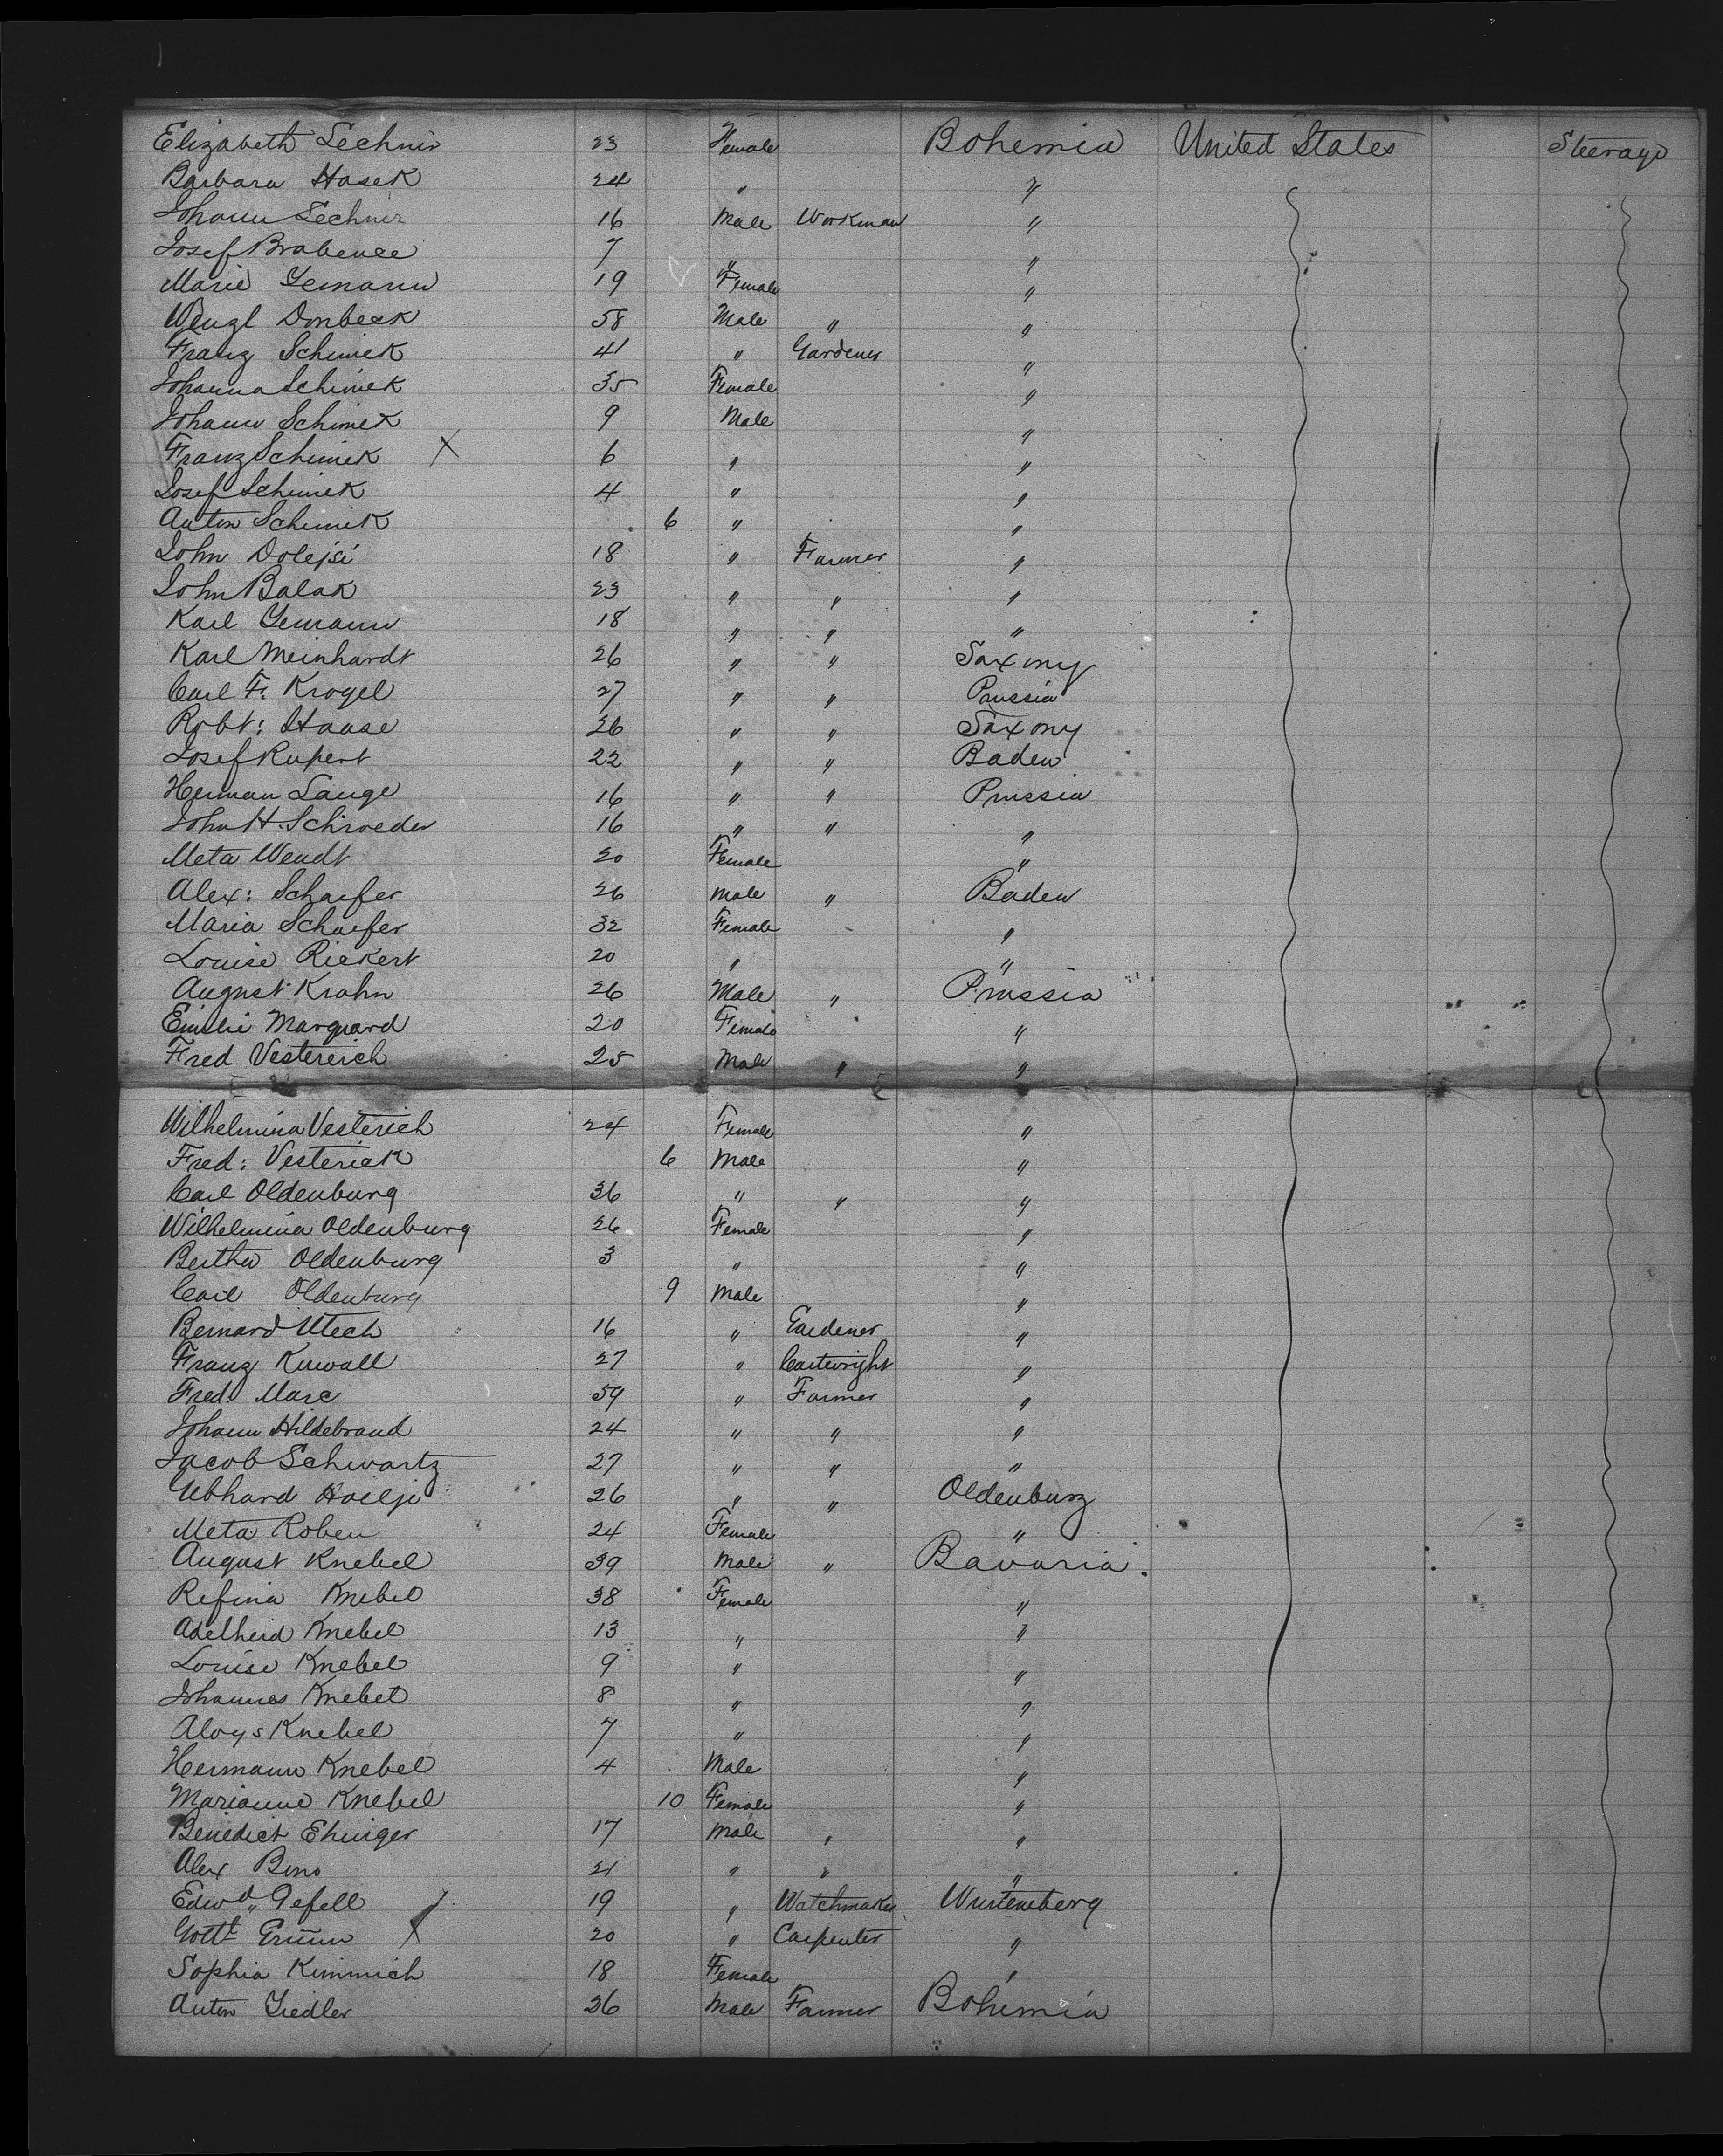 Elizabeth Lechnir 23 Female Bohemia United States Steerage
Barbara Hasek 24 " "
Johann Lechnir 16 Male Workman "
Josef Brabenec 7 " "
Marie Zemann 19 Female "
Wenzl Donbeck 58 Male " "
Franz Schimek 41 " Gardener "
Johanna Schimek 35 Female "
Johann Schimek 9 Male "
Franz Schimek X 6 " "
Josef Schimek 4 " "
Anton Schimek 6 " "
John Dolejsi 18 " Farmer "
John Balak 23 " " "
Karl Zemann 18 " " "
Karl Meinhardt 26 " " Saxony
Carl F. Krogel 27 " " Prussia
Robt: Haase 26 " " Saxony
Josef Rupert 22 " " Baden
Herman Lange 16 " " Prussia
John H. Schroeder 16 " " "
Meta Wendt 20 Female "
Alex: Schaefer 26 Male " Baden
Maria Schaefer 32 Female "
Louise Rickert 20 " "
August Krahn 26 Male " Prussia
Emilie Marquard 20 Female "
Fred Vestereich 25 Male " "
Wilhelmina Vesterich 24 Female "
Fred: Vesterich 6 Male "
Carl Oldenburg 36 " " "
Wilhelmina Oldenburg 26 Female "
Bertha Oldenburg 3 " "
Carl Oldenburg 9 Male "
Bernard Utech 16 " Gardener "
Franz Kuwall 27 " Cartwright "
Fred. Marc 59 " Farmer "
Johann Hildebrand 24 " " "
Jacob Schwartz 27 " " "
26 " " Oldenburg
Meta Roben 24 Female "
August Knebel 39 Male " Bavaria
Refina Knebel 38 Female "
Adelheid Knebel 13 " "
Louise Knebel 9 " "
Johannes Knebel 8 " "
Aloys Knebel 7 " "
Hermann Knebel 4 Male "
Marianne Knebel 10 Female "
Benedict Ehinger 17 Male " "
Alex 21 " " "
Edwd. Gefell 19 " Watchmaker Wurtemberg
Gottl. Grünn X 20 " Carpenter "
Sophia Kimmich 18 Female "
Anton Ziedler 26 Male Farmer Bohemia